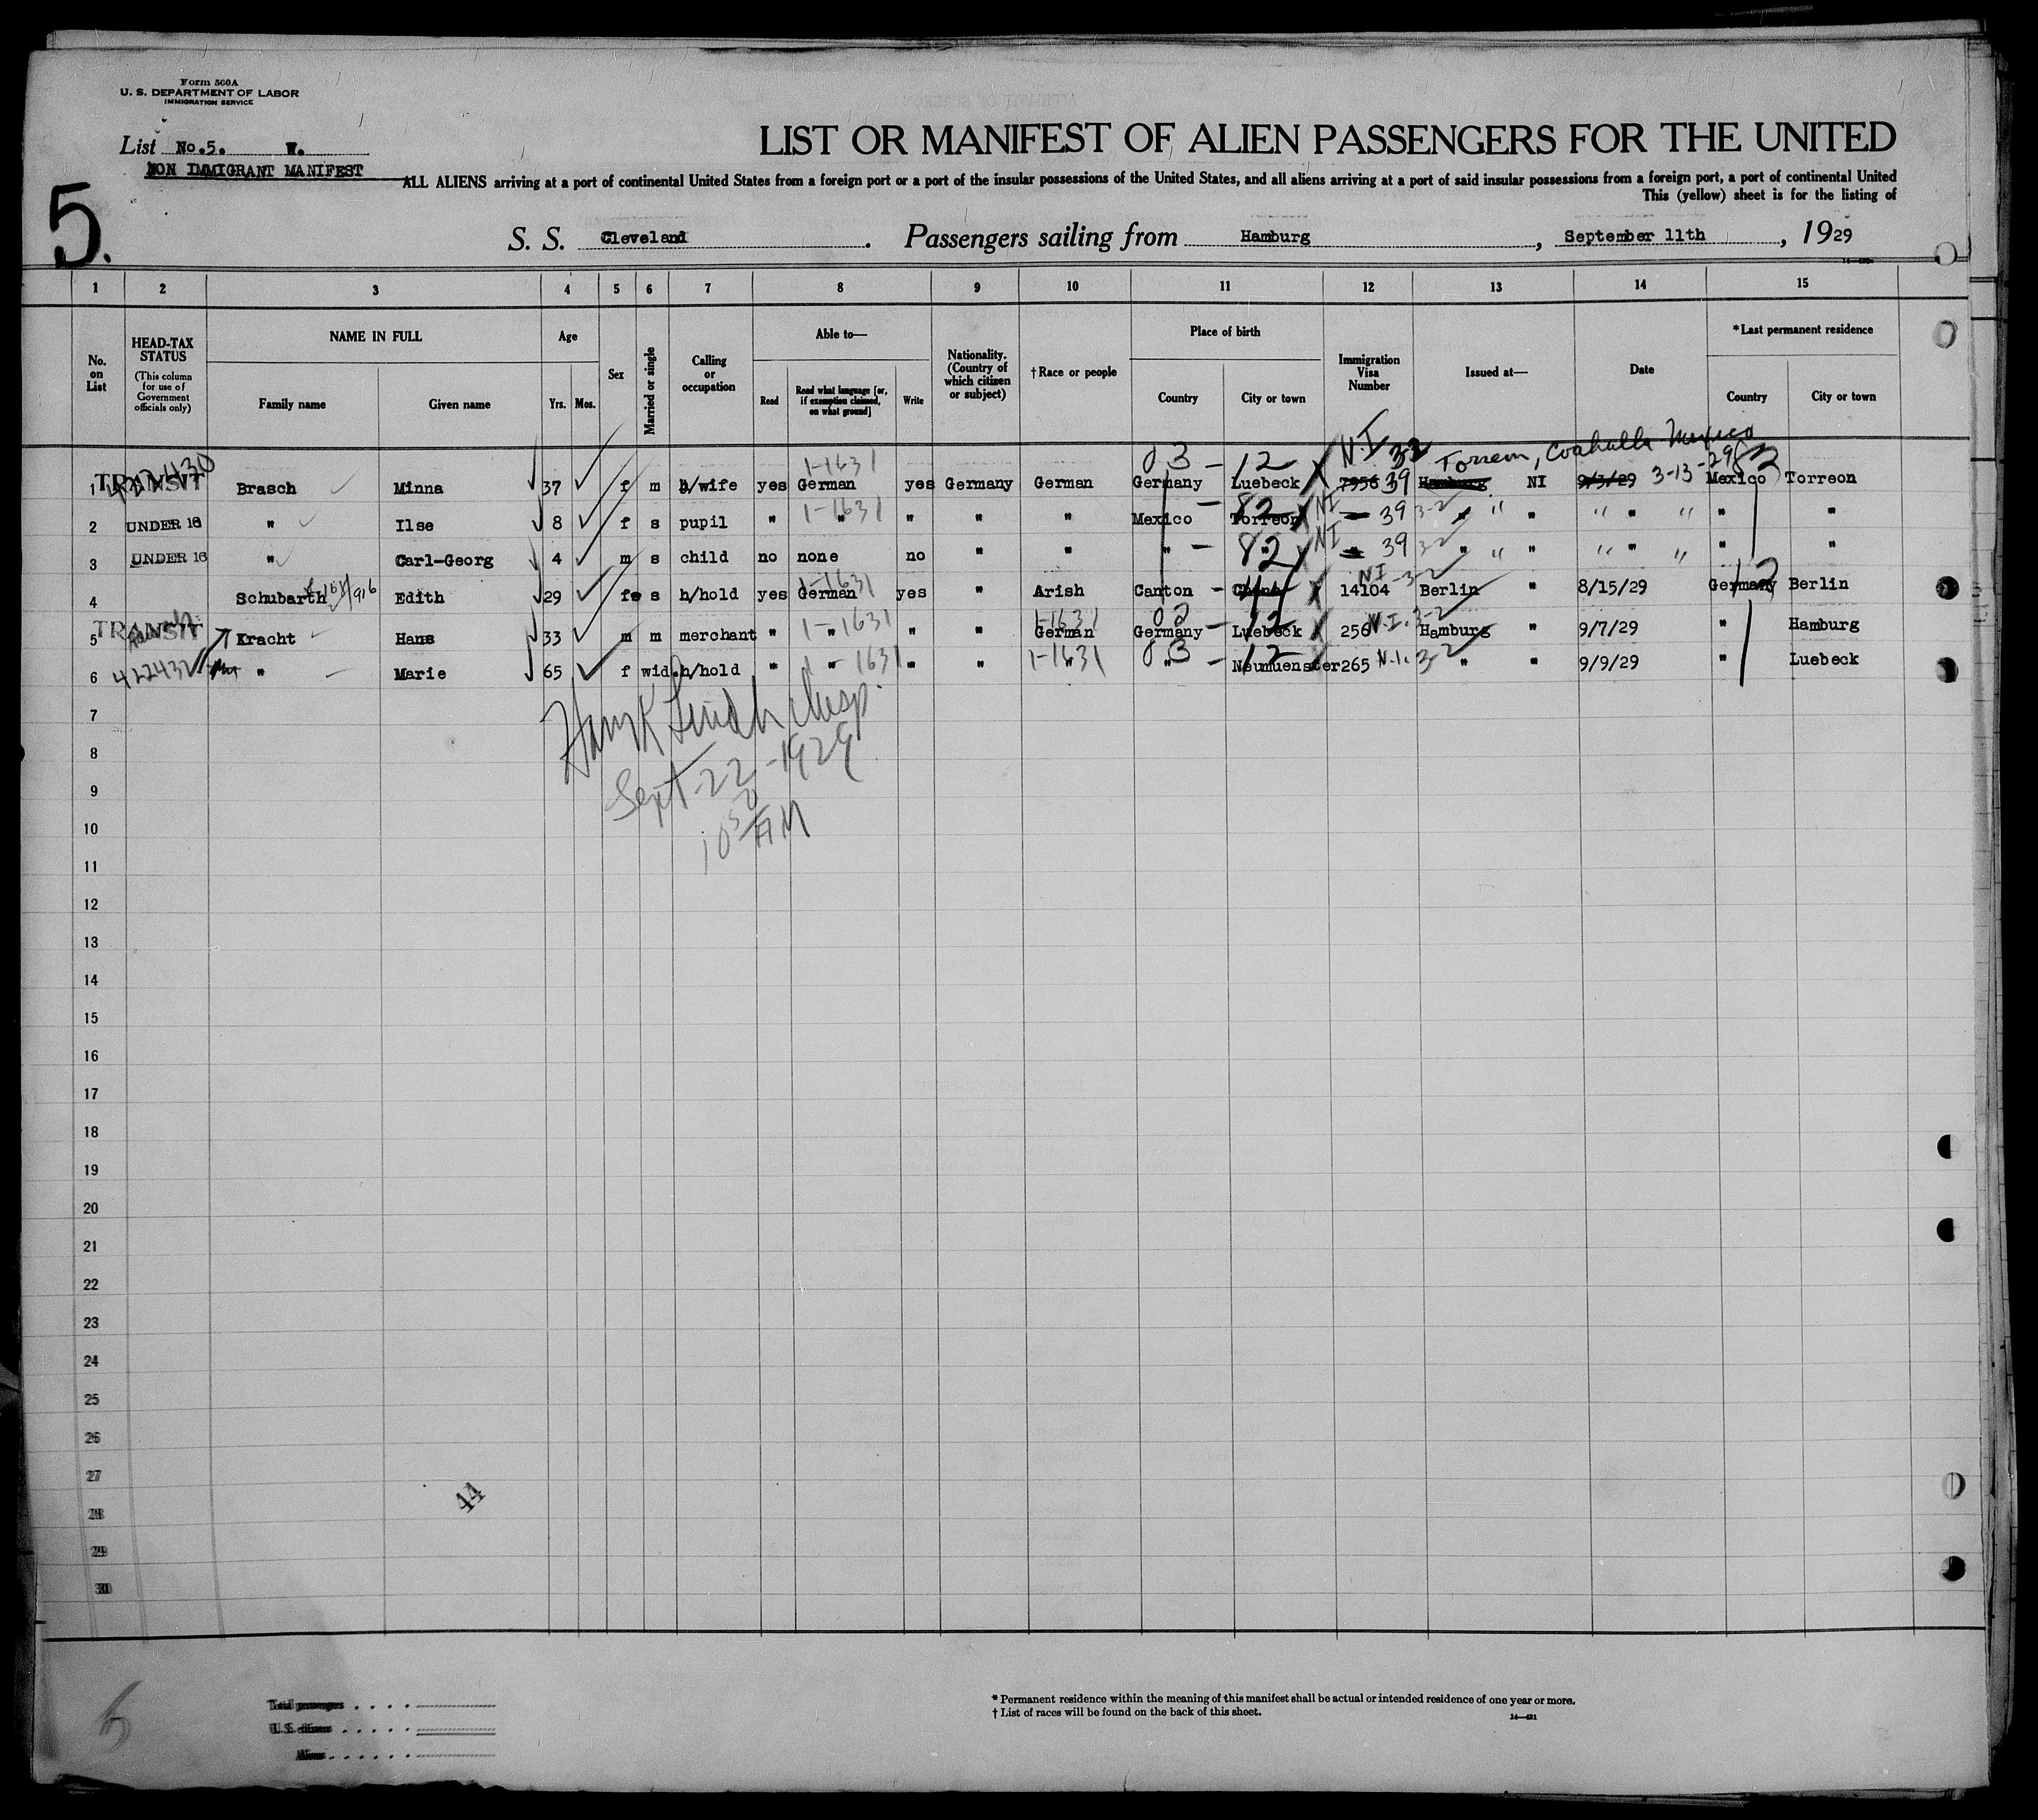 Form 500A
U. S. DEPARTMENT OF LABOR
IMMIGRATION SERVICE
List No.5. W.
NON IMMIGRANT MANIFEST
5.
LIST OR MANIFEST OF ALIEN PASSENGERS FOR THE UNITED
ALL ALIENS arriving at a port of continental United States from a foreign port or a port of the insular possessions of the United States, and all aliens arriving at a port of said insular possessions from a foreign port, a port of continental United
This (yellow) sheet is for the listing of
S. S. Cleveland. Passengers sailing from Hamburg, September 11th, 1929
1 2 3 4 5 6 7 8 9 10 11 12 13 14 15
No. on List
HEAD-TAX STATUS (This column for use of Government officials only)
NAME IN FULL
Family name Given name
Age
Yrs. Mos.
Sex
Married or single
Calling or occupation
Able to—
Read Read what language [or, if exemption claimed, on what ground] Write
Nationality. (Country of which citizen or subject)
† Race or people
Place of birth
Country City or town
Immigration Visa Number
Issued at—
Date
*Last permanent residence
Country City or town
03 - 12 N.I 32 Torreon, Coahuila Mexico
1 TRANSIT 422430 Brasch Minna 37 f m h/wife yes German 1-1631 yes Germany German Germany Luebeck 7956 39 Hamburg NI 9/3/29 3-13-29 83 Mexico Torreon
2 UNDER 16 " Ilse 8 f s pupil " " 1-1631 " " " Mexico - 82 Torreon NI 39 3-2 " " " " " " " "
3 UNDER 16 " Carl-Georg 4 m s child no none no " " " - 82 " NI 39 32 " " " " " " " "
4 Schubarth Edith 29 fe s h/hold yes German 1-1631 yes " Arish Canton - 44 China 14104 NI -32 Berlin " 8/15/29 12 Germany Berlin
5 TRANSIT Kracht Hans 33 m m merchant " " 1-1631 " " German 1-1631 Germany - 12 Luebeck 256 N.I. 3-2 Hamburg " 9/7/29 " Hamburg
6 422432 " Marie 65 f wid. h/hold " " 1-1631 " " " 1-1631 03 " - 12 Neumuenster 265 N.I. 32 " " 9/9/29 " Luebeck
Insp.
Sept-22-1929
10 50 AM
7
8
9
10
11
12
13
14
15
16
17
18
19
20
21
22
23
24
25
26
27
28
29
30
44
6
Total passengers . . . .
U. S. citizens . . . . .
Aliens . . . . . .
* Permanent residence within the meaning of this manifest shall be actual or intended residence of one year or more.
† List of races will be found on the back of this sheet.
14—421